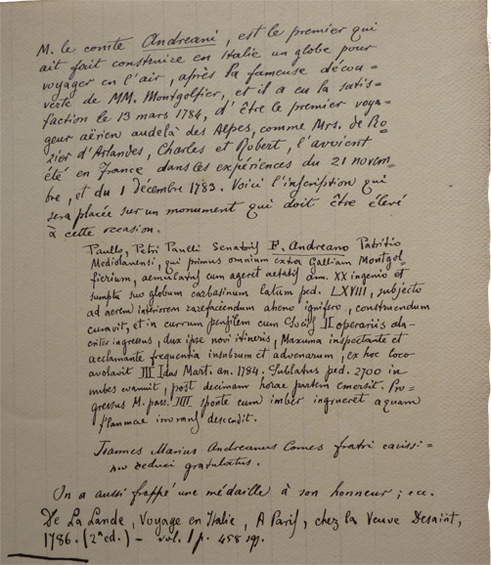 M. le comte Andreani, est le premier qui
ait fait construire en Italie un globe pour
voyager en l'air, après la fameuse décou=
verte de MM. Montgolfier, et il a eu la satis=
faction le 13 mars 1784, d'être le premier voya=
geur aërien audelà des Alpes, comme Mrs. de Ro=
zier d'Arlandes, Charles et Robert, l'avoient
été en France dans les expériences du 21 novem=
bre, et du 1 décembre 1783. Voici l'inscription qui
sera placée sur un monument qui doit être élevé
à cette occasion.
Paullo, Petri Paulli Senatoris F. Andreano Patritio
Mediolanensi, qui primus omnium extra Galliam Montgol=
fierium, aemulatus cum ageret aetatis ann. XX ingenio et
sumptu suo globum carbasinum latum ped. LXVIII, subjecto
ad aerem interiorem rarefaciendum aheno ignifero, construendum
curavit, et in currum pensilem cum Sociis II operariis da=
ingressus, dux ipse novi itineris, Maxuma inspectante et
acclamante frequentia insubrum et advenarum, ex hoc loco
avolavit III Idus Mart. an. 1784. Sublatus ped. 2700 in
nubes evanuit, post decimam horae partem emersit. Pro=
gressus M. pass. sponte cum imber ingrueret aquam
flammae descendit.
Joannes Marius Andreanus Comes fratri carissi=
mo reduci gratulatus.
On a aussi frappé une médaille à son honneur;
De La Lande, Voyage en Italie, A Paris, chez la Veuve Desaint,
1786. (2a ed.) - vol. 1 p. 458 sq.